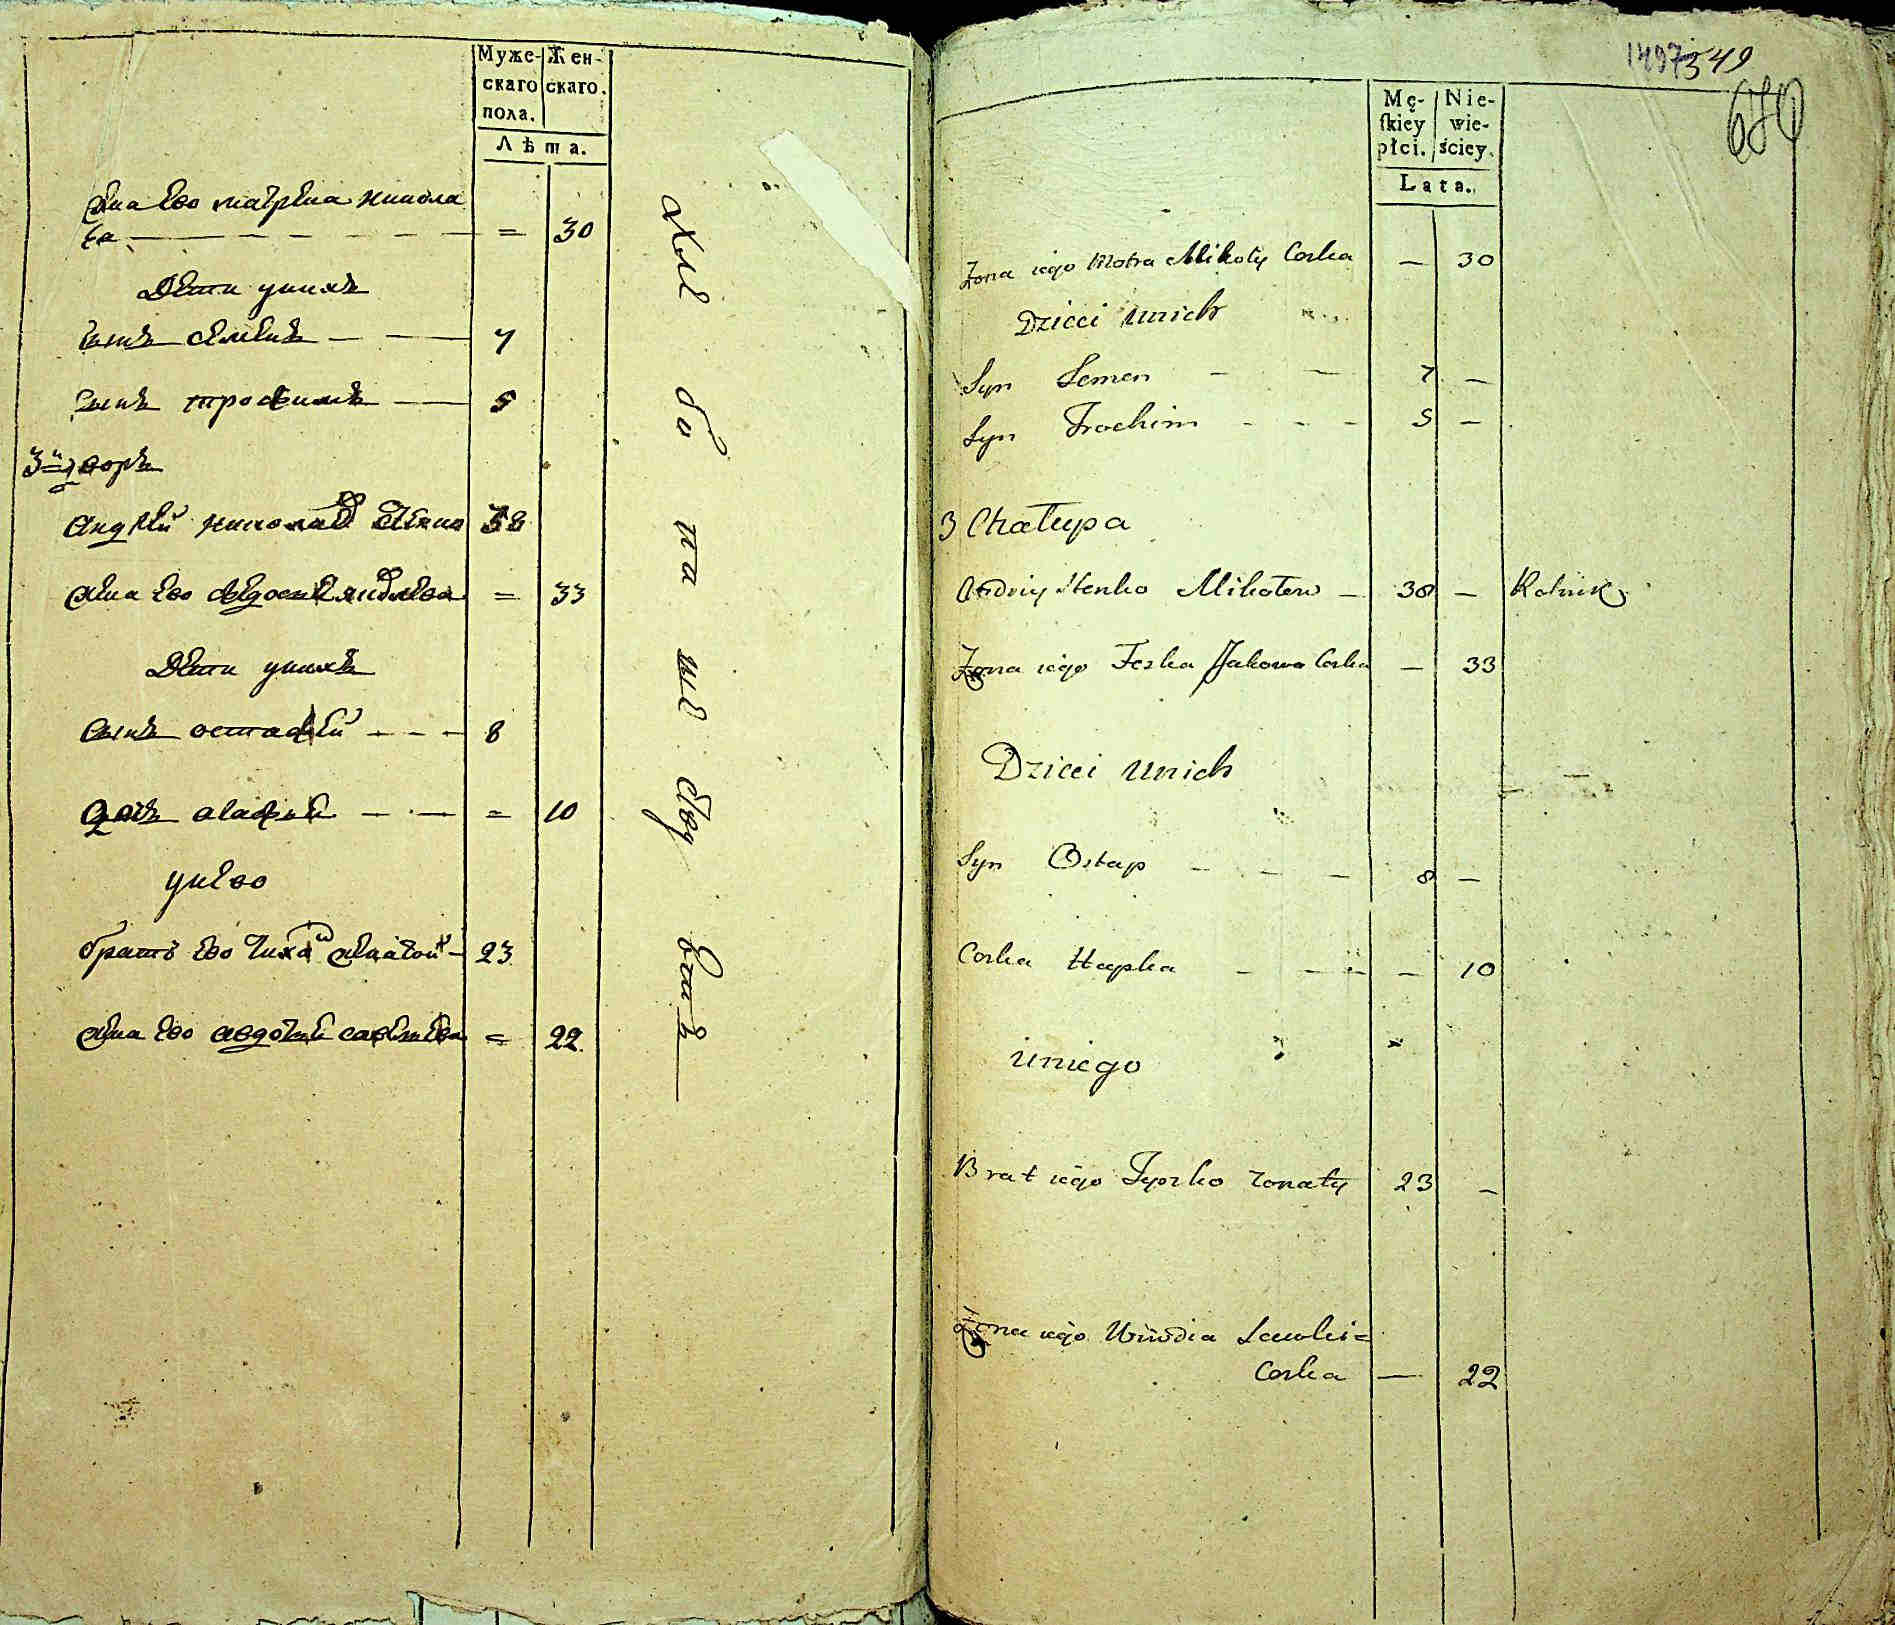 Муже-
скаго
пола.
Жен-
скаго.
Лѣта.
жена Ево матрена никола
Ева = 30
Дети унихъ
Сынъ семенъ 7
Сынъ трофимъ 5
3й дворъ
Андрей николаев 38
жена Ево федосия яковлева = 33
Дети унихъ
Сынъ остафей 8
дочь агафия = 10
унево
братъ Ево тихон женатой 23
жена Ево авдотия савелиева = 22
хле бо па ше ству етъ
149 549
680
Mę-
skiey
płci.
Nie-
wie-
ściey.
Lata.
Zona iego Motra Mikoły Corka — 30
Dzieci unich
Syn Semen 7 —
Syn Trochim 5 —
3 Chałupa
Andriy Stenko Mikołow 38 — Rolnik
Zona iego Feska Jakowa Corka — 33
Dzieci unich
Syn Ostap 8 —
Corka Hapka — 10
uniego
Brat iego Tyszko zonaty 23 —
Zona iego Uwdia
Corka — 22